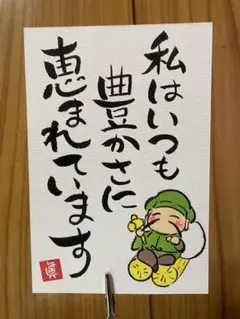 私はいつも
豊かさに
恵まれています